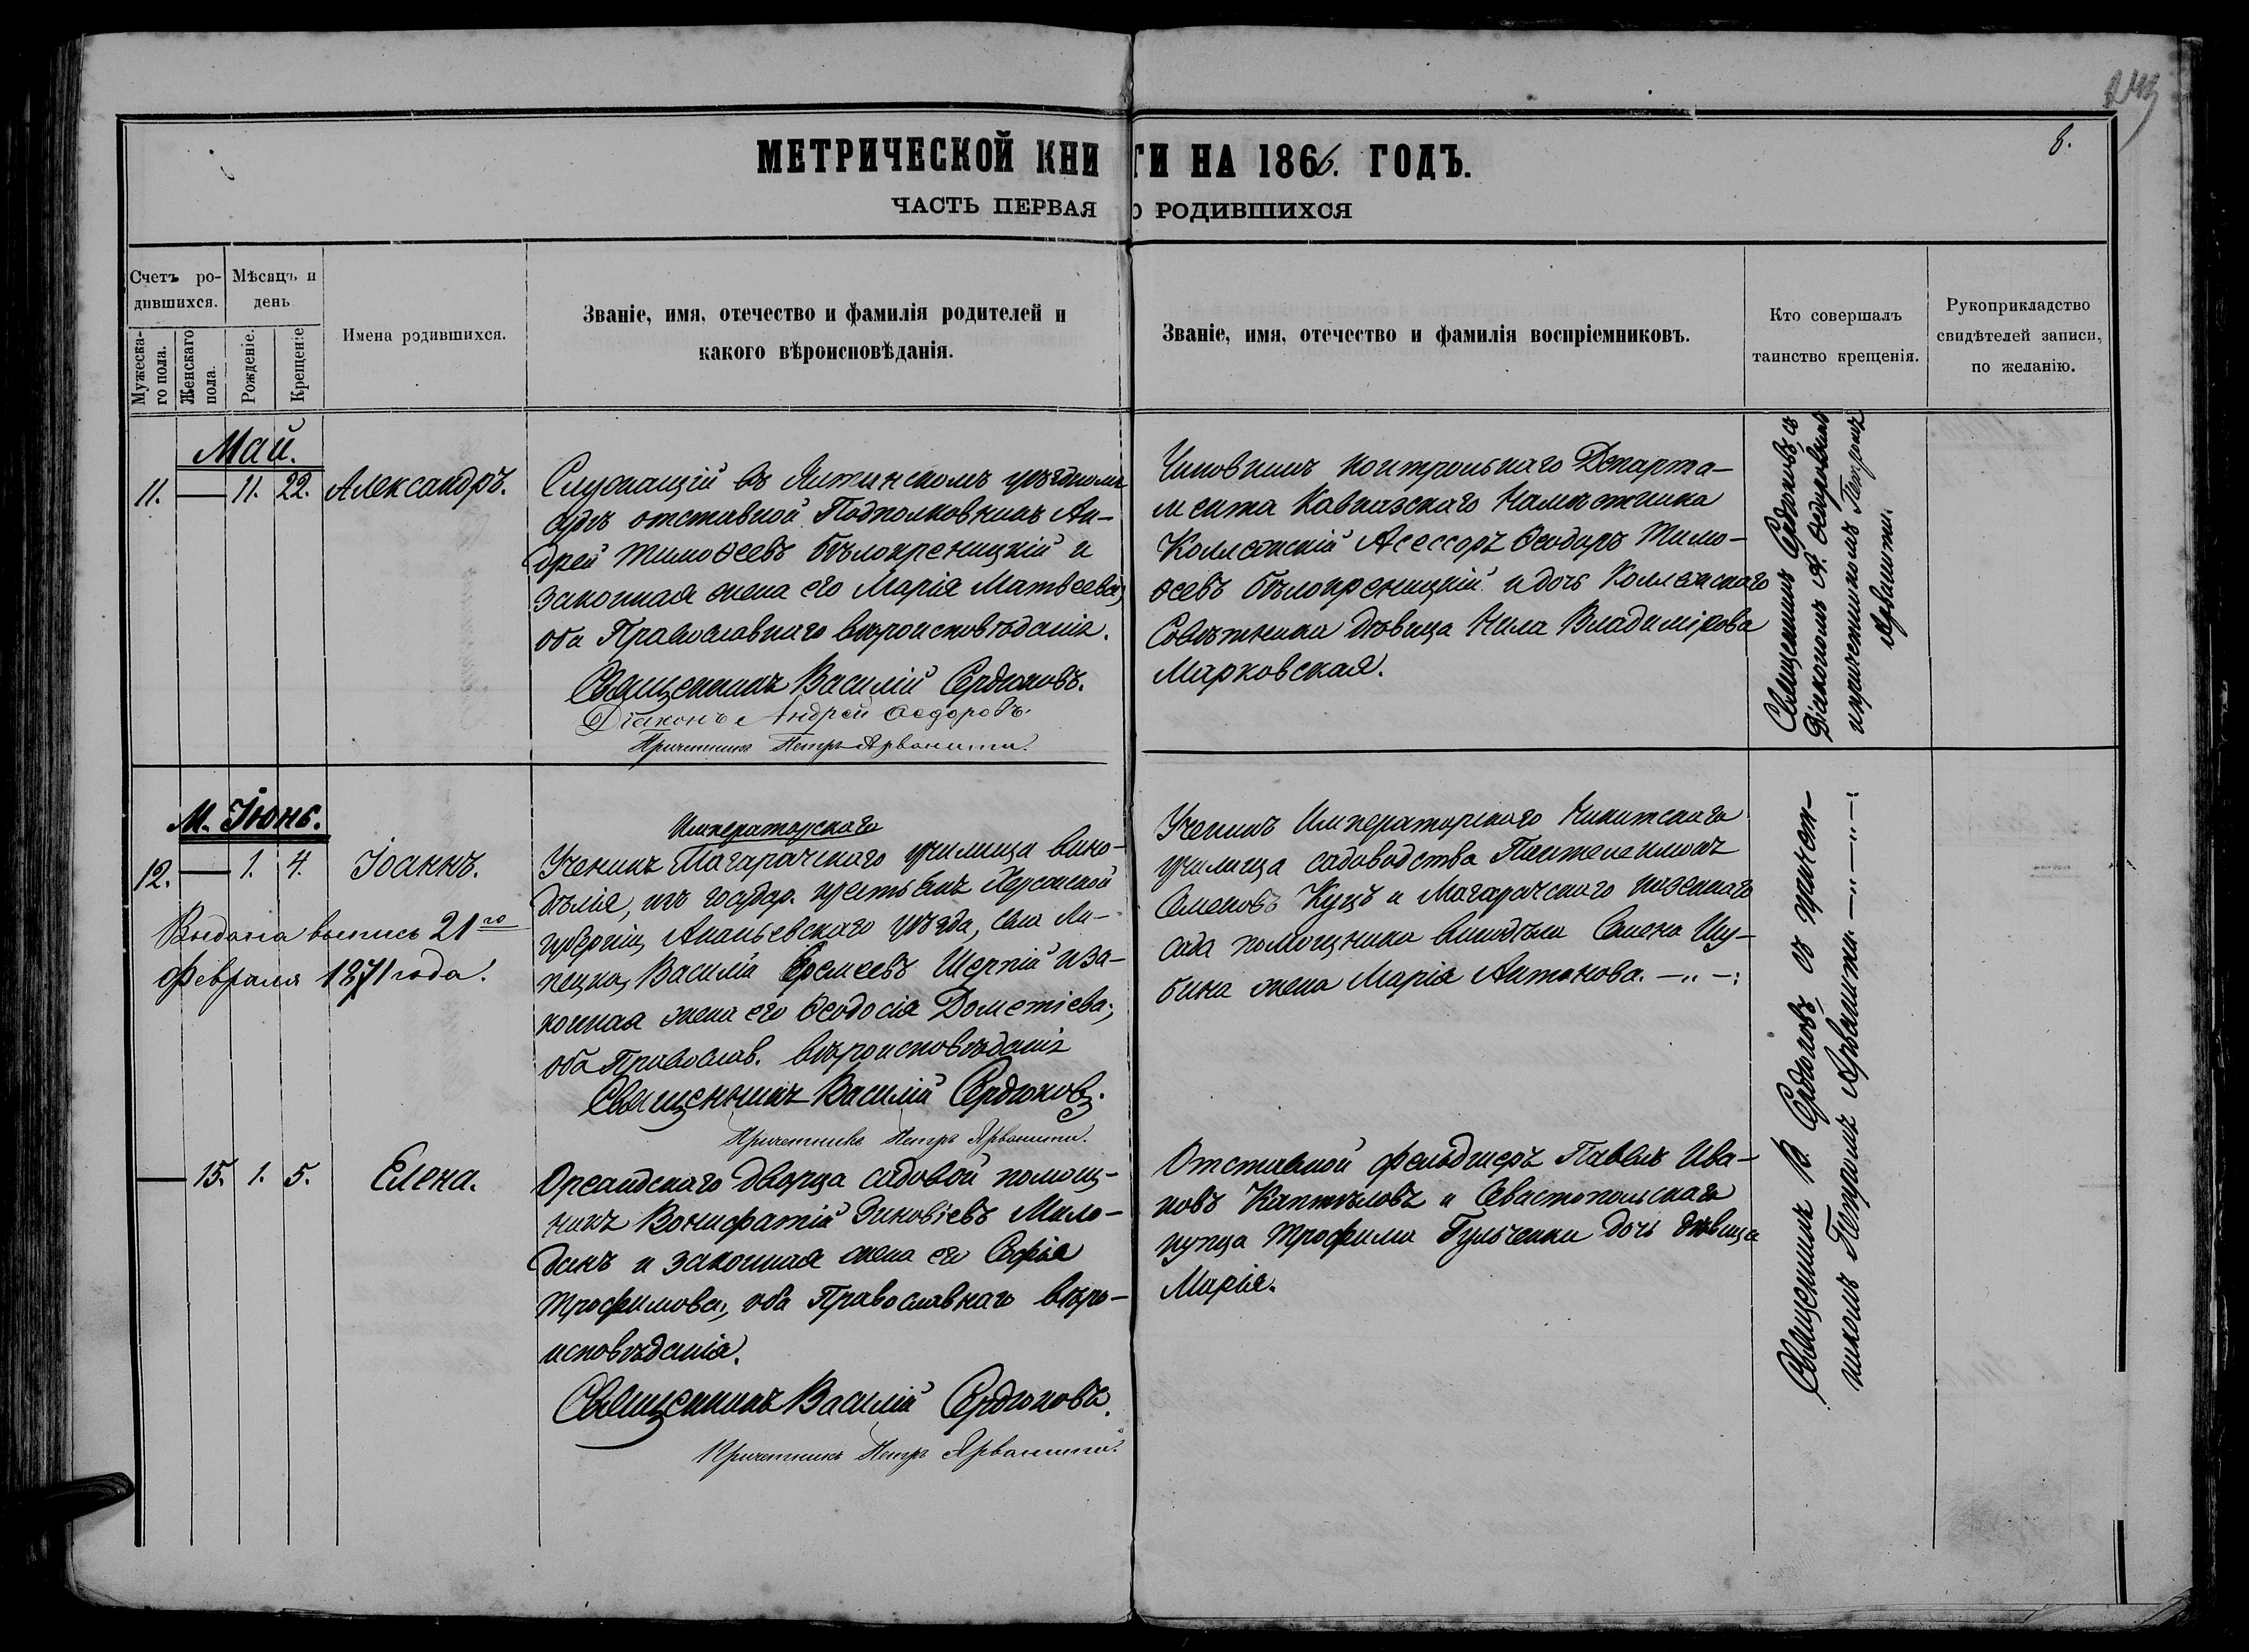 243
8.
МЕТРИЧЕСКОЙ КНИГИ НА 1866. ГОДЪ.
ЧАСТЬ ПЕРВАЯ О РОДИВШИХСЯ
Счетъ ро-
дившихся.
Мужеска-
го пола.
Женскаго
пола.
Мѣсяцъ и
день
Рожденіе.
Крещеніе
Имена родившихся.
Званіе, имя, отечество и фамилія родителей и
какого вѣроисповѣданія.
Званіе, имя, отечество и фамилія воспріемниковъ.
Кто совершалъ
таинство крещенія.
Рукоприкладство
свидѣтелей записи,
по желанію.
Май.
11. — 11. 22. Александръ.
Служащій въ Ялтинскомъ уѣздномъ
судѣ отставной Подполковникъ Ан-
дрей Тимоѳеевъ Бѣлокреницкій и
законная жена его Марія Матвеева,
оба Православнаго вѣроисповѣданія.
Священникъ Василій Сердюковъ.
Діаконъ Андрей Ѳедоровъ.
Причетникъ Петръ Арванити.
Чиновникъ контрольнаго Департа-
мента Кавказскаго Намѣстника
Коллежскій Асессоръ Ѳеодоръ Тимо-
ѳеевъ Бѣлокреницкій и дочь Коллежскаго
Совѣтника дѣвица Нила Владимірова
Марковская.
Священникъ Сердюковъ, съ
Діакономъ А. Ѳедоровымъ
и причетникомъ Петромъ
Арванити.
М. Іюнь.
12. — 1. 4. Іоаннъ.
Выдана выпись 21го
Февраля 1871 года.
Императорскаго
Ученикъ Магарачскаго училища вино-
дѣлія, изъ государ. крестьянъ Херсонской
губерніи, Ананьевскаго уѣзда, села Ли-
пецка, Василій Еремеевъ Шерпій и за-
конная жена его Ѳеодосія Дометіева;
оба Православ. вѣроисповѣданія
Священникъ Василій Сердюковъ.
Причетникъ Петръ Арванити.
Ученикъ Императорскаго Никитскаго
училища садоводства Пантелеимонъ
Семеновъ Куцъ и Магарачскаго казеннаго
сада помощника винодѣла Семена Шу-
бина жена Марія Антонова. — „ —:
— 15. 1. 5. Елена.
Ореандскаго дворца садовой помощ-
никъ Вонифатій Зиновіевъ Мило-
данъ и законная жена его Софія
Трофимова, оба Православнаго вѣро-
исповѣданія.
Священникъ Василій Сердюковъ.
Причетникъ Петръ Арванити.
Отставной фельдшеръ Павелъ Ива-
новъ Каптѣловъ и Севастопольскаго
купца Трофима Гульченки дочь дѣвица
Марія.
Священникъ В. Сердюковъ, съ причет-
никомъ Петромъ Арванити. — „ — „ —: